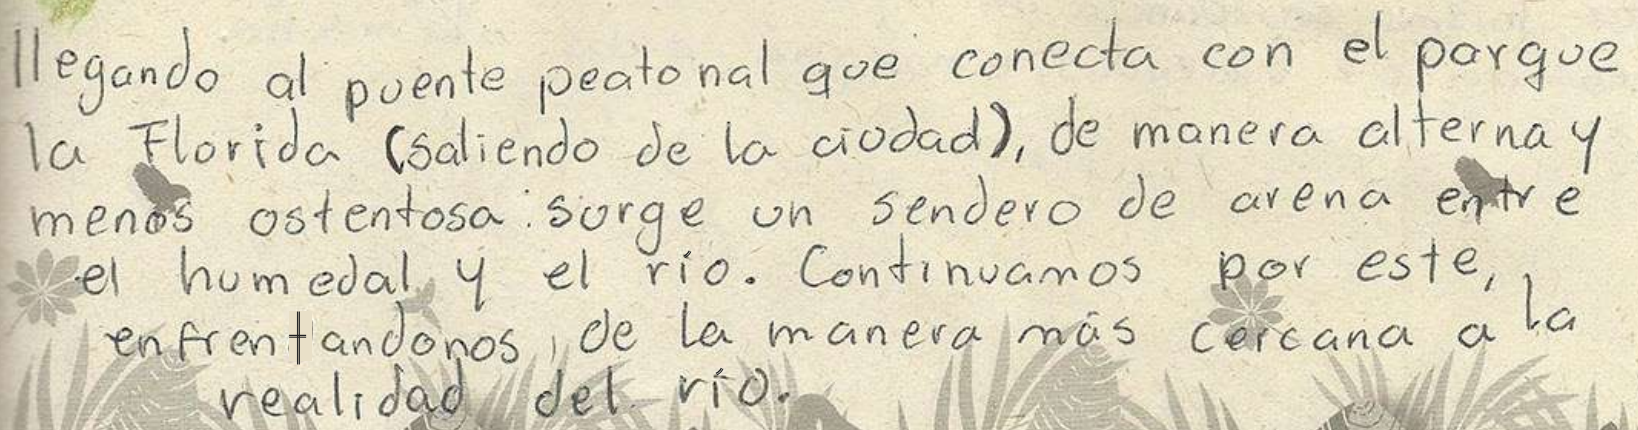 llegando al puente peatonal que conecta con el parque
la Florida (saliendo de la ciudad), de manera alterna y
menos ostentosa surge un sendero de arena entre
el humedal y el río. Continuamos por este,
enfrentandonos, de la manera más cercana a la
realidad del río.